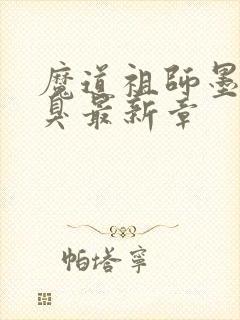 魔道祖師墨
臭最新章
帕塔寧